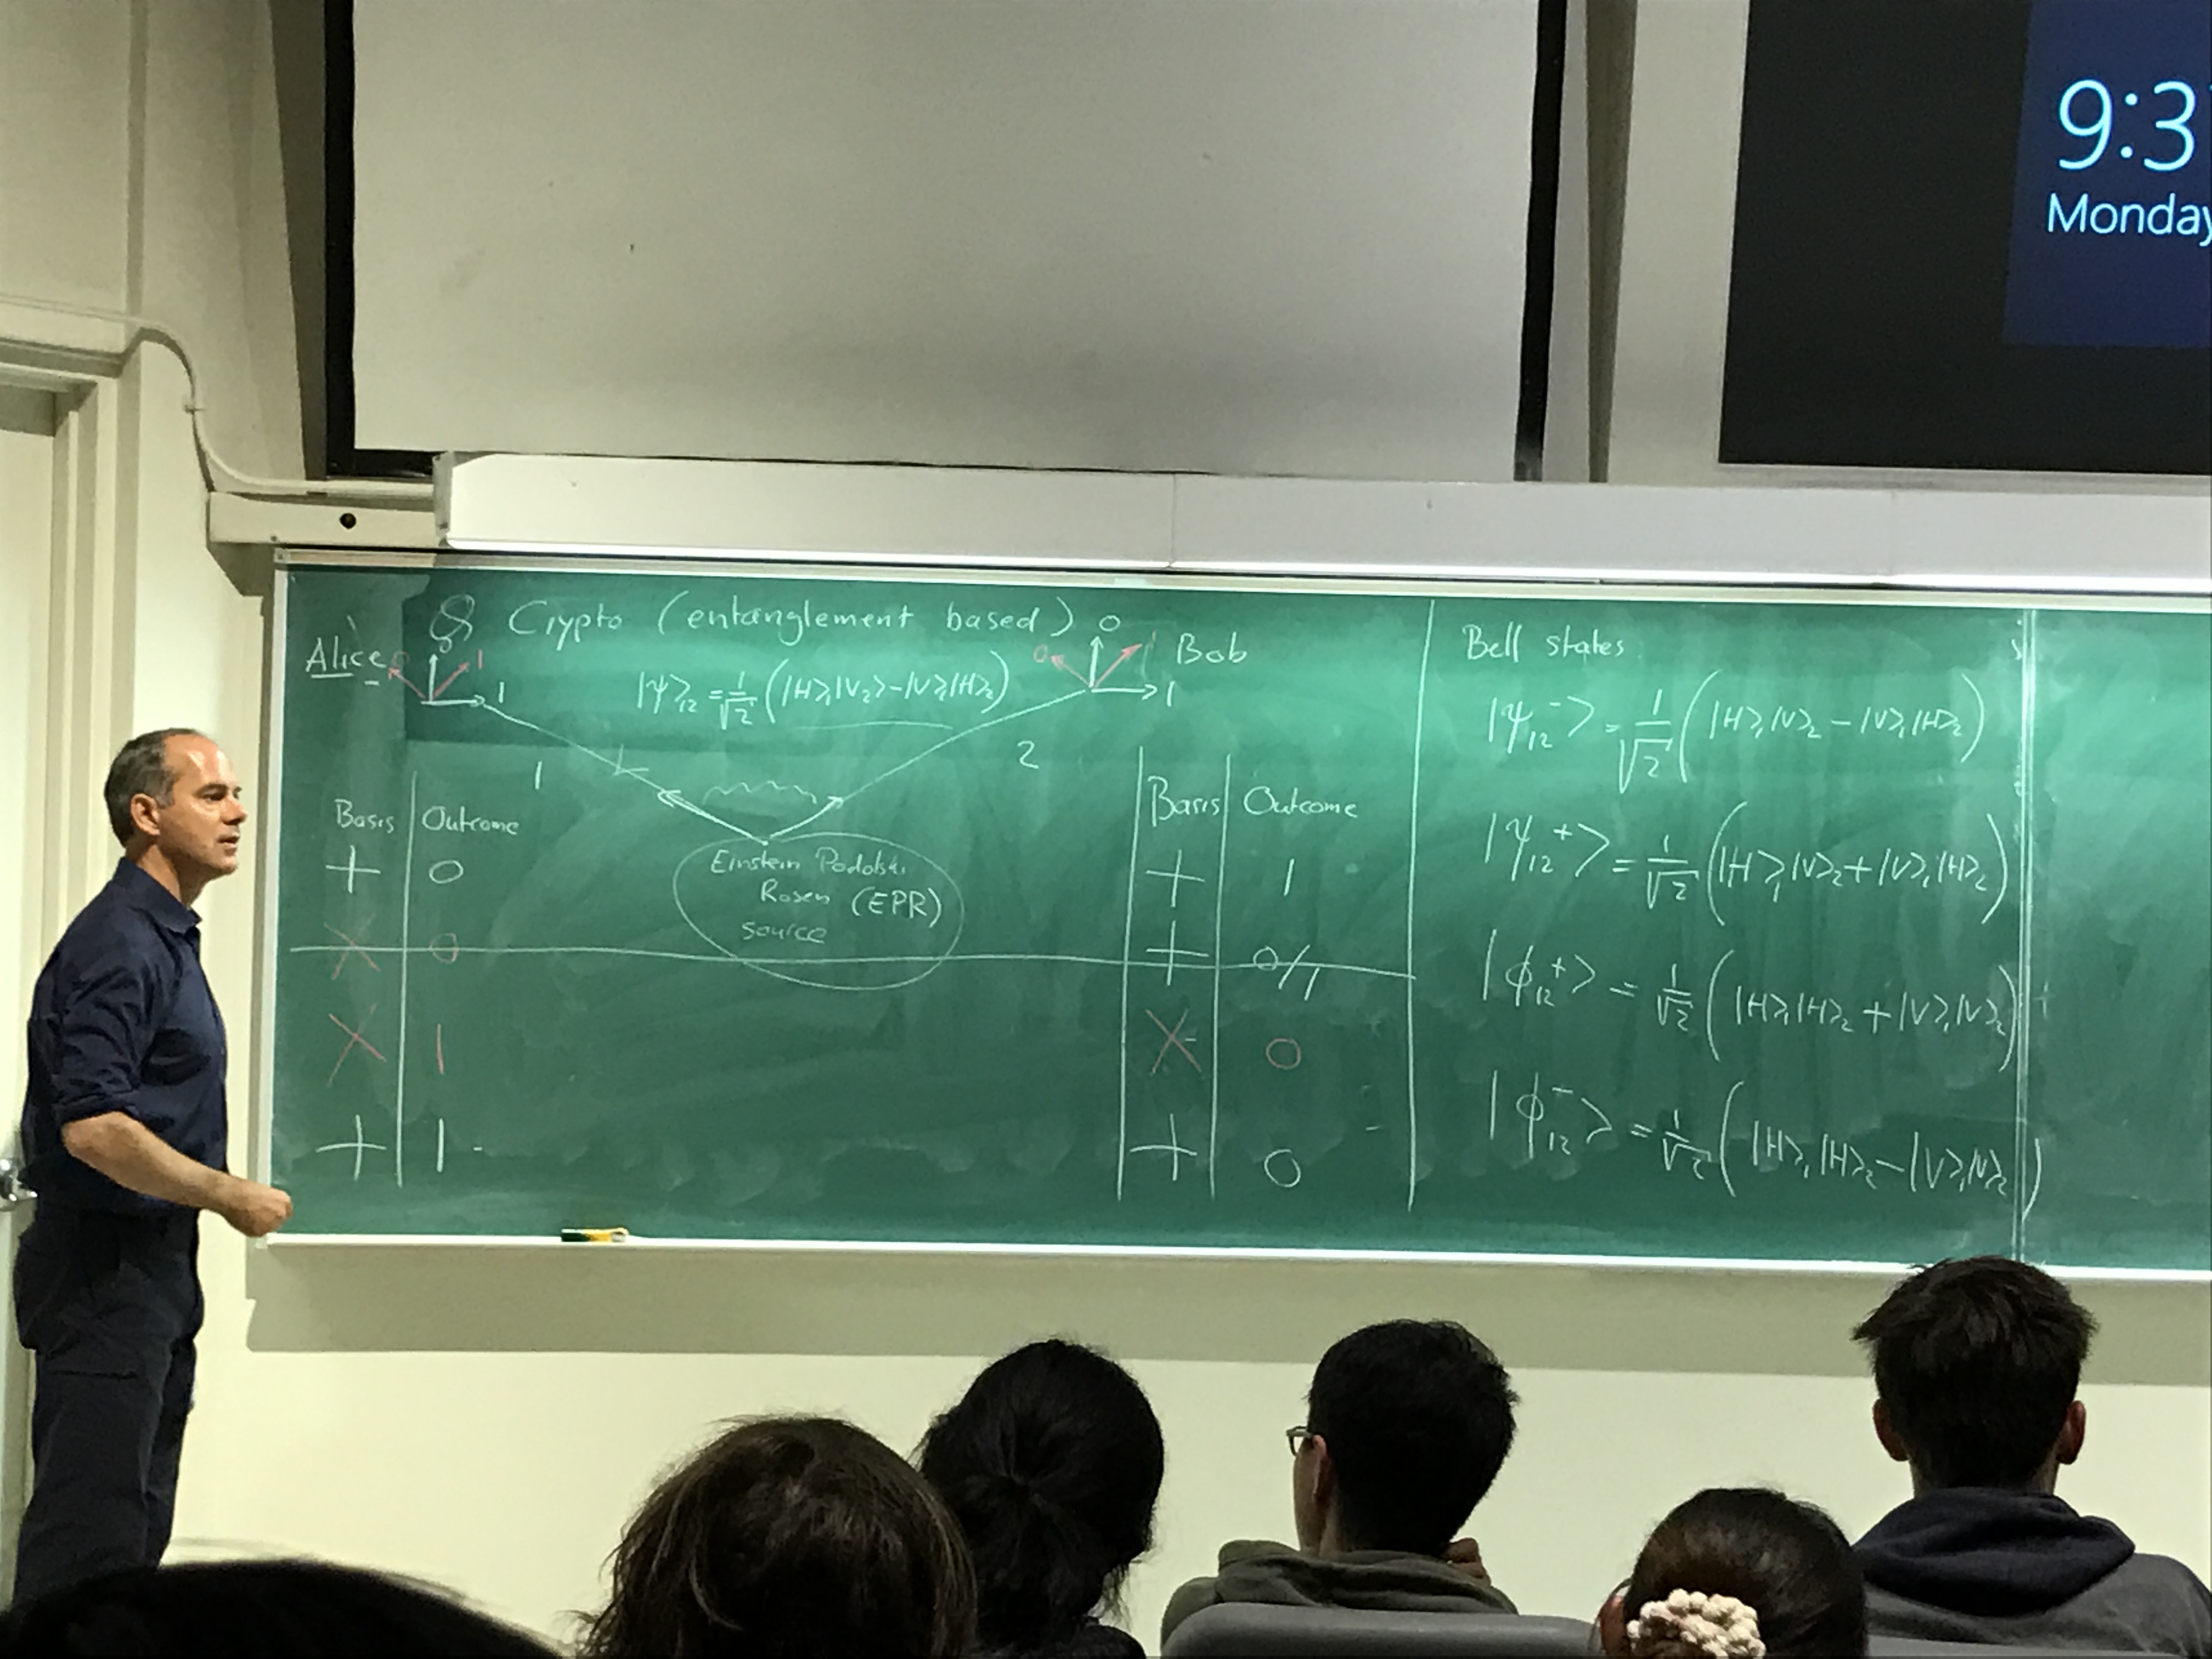 9:3
Monday
Q Crypto (entanglement based)
Alice
0
1
1
|ψ⟩₁₂ = 1/√2 (|H⟩₁|V₂⟩ − |V⟩₁|H⟩₂)
0
0
1
Bob
1
2
Einstein Podolski
Rosen (EPR)
source
Basis Outcome
+ 0
X 0
X 1
+ 1
Basis Outcome
+ 1
+ 0/1
X 0
+ 0
Bell states
|ψ₁₂⁻⟩ = 1/√2 (|H⟩₁|V⟩₂ − |V⟩₁|H⟩₂)
|ψ₁₂⁺⟩ = 1/√2 (|H⟩₁|V⟩₂ + |V⟩₁|H⟩₂)
|ϕ₁₂⁺⟩ = 1/√2 (|H⟩₁|H⟩₂ + |V⟩₁|V⟩₂)
|ϕ₁₂⁻⟩ = 1/√2 (|H⟩₁|H⟩₂ − |V⟩₁|V⟩₂)